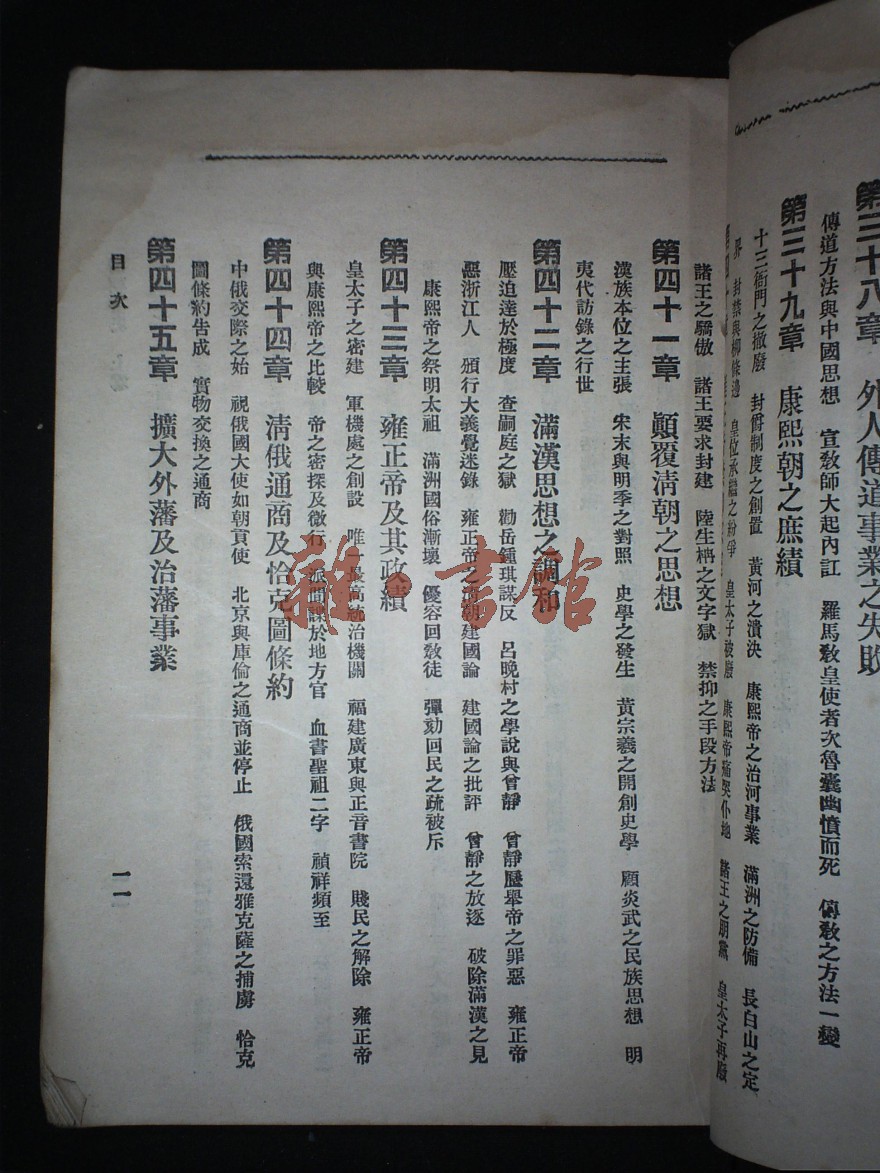 第三十八章　外人傳道事業之失敗
傳道方法與中國思想　宣敎師大起內訌　羅馬敎皇使者次魯囊幽憤而死　傳敎之方法一變
第三十九章　康熙朝之庶績
十三衙門之撤廢　封爵制度之創置　黃河之潰決　康熙帝之治河事業　滿洲之防備　長白山之定
界　封禁與柳條邊　皇位承繼之紛爭　皇太子被廢　康熙帝痛哭仆地　諸王之朋黨　皇太子再廢
諸王之驕傲　諸王要求封建　陸生枬之文字獄　禁抑之手段方法
第四十一章　顚覆淸朝之思想
漢族本位之主張　宋末與明季之對照　史學之發生　黃宗羲之開創史學　顧炎武之民族思想　明
夷代訪錄之行世
第四十二章　滿漢思想之調和
壓迫達於極度　查嗣庭之獄　勸岳鍾琪謀反　呂晚村之學說與曾靜　曾靜歷舉帝之罪惡　雍正帝
惡浙江人　頒行大義覺迷錄　雍正帝之淸朝建國論　建國論之批評　曾靜之放逐　破除滿漢之見
康熙帝之祭明太祖　滿洲國俗漸壞　優容回敎徒　彈劾回民之疏被斥
第四十三章　雍正帝及其政績
皇太子之密建　軍機處之創設　唯一最高統治機關　福建廣東與正音書院　賤民之解除　雍正帝
與康熙帝之比較　帝之密探及微行　派間諜於地方官　血書聖祖二字　禎祥頻至
第四十四章　淸俄通商及恰克圖條約
中俄交際之始　視俄國大使如朝貢使　北京與庫倫之通商並停止　俄國索還雅克薩之捕虜　恰克
圖條約吿成　實物交換之通商
第四十五章　擴大外藩及治藩事業
目次
一一
雜·書館